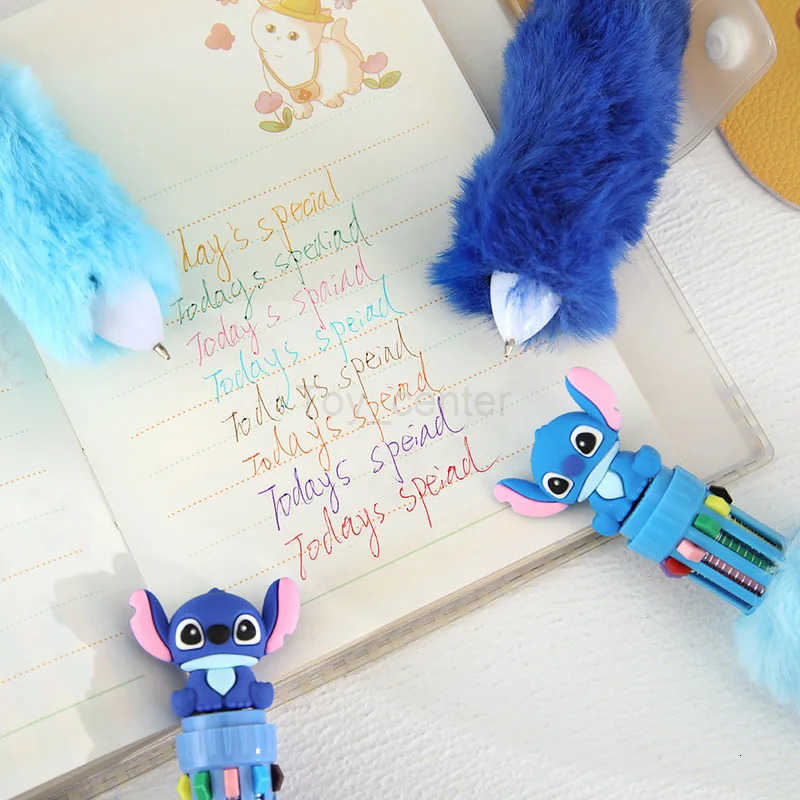 day's special
Todays spediad
Today's spaiad
Todays speiad
Todays speiad
Todays speiad
Todays speiad
Todays speiad
Toy_center